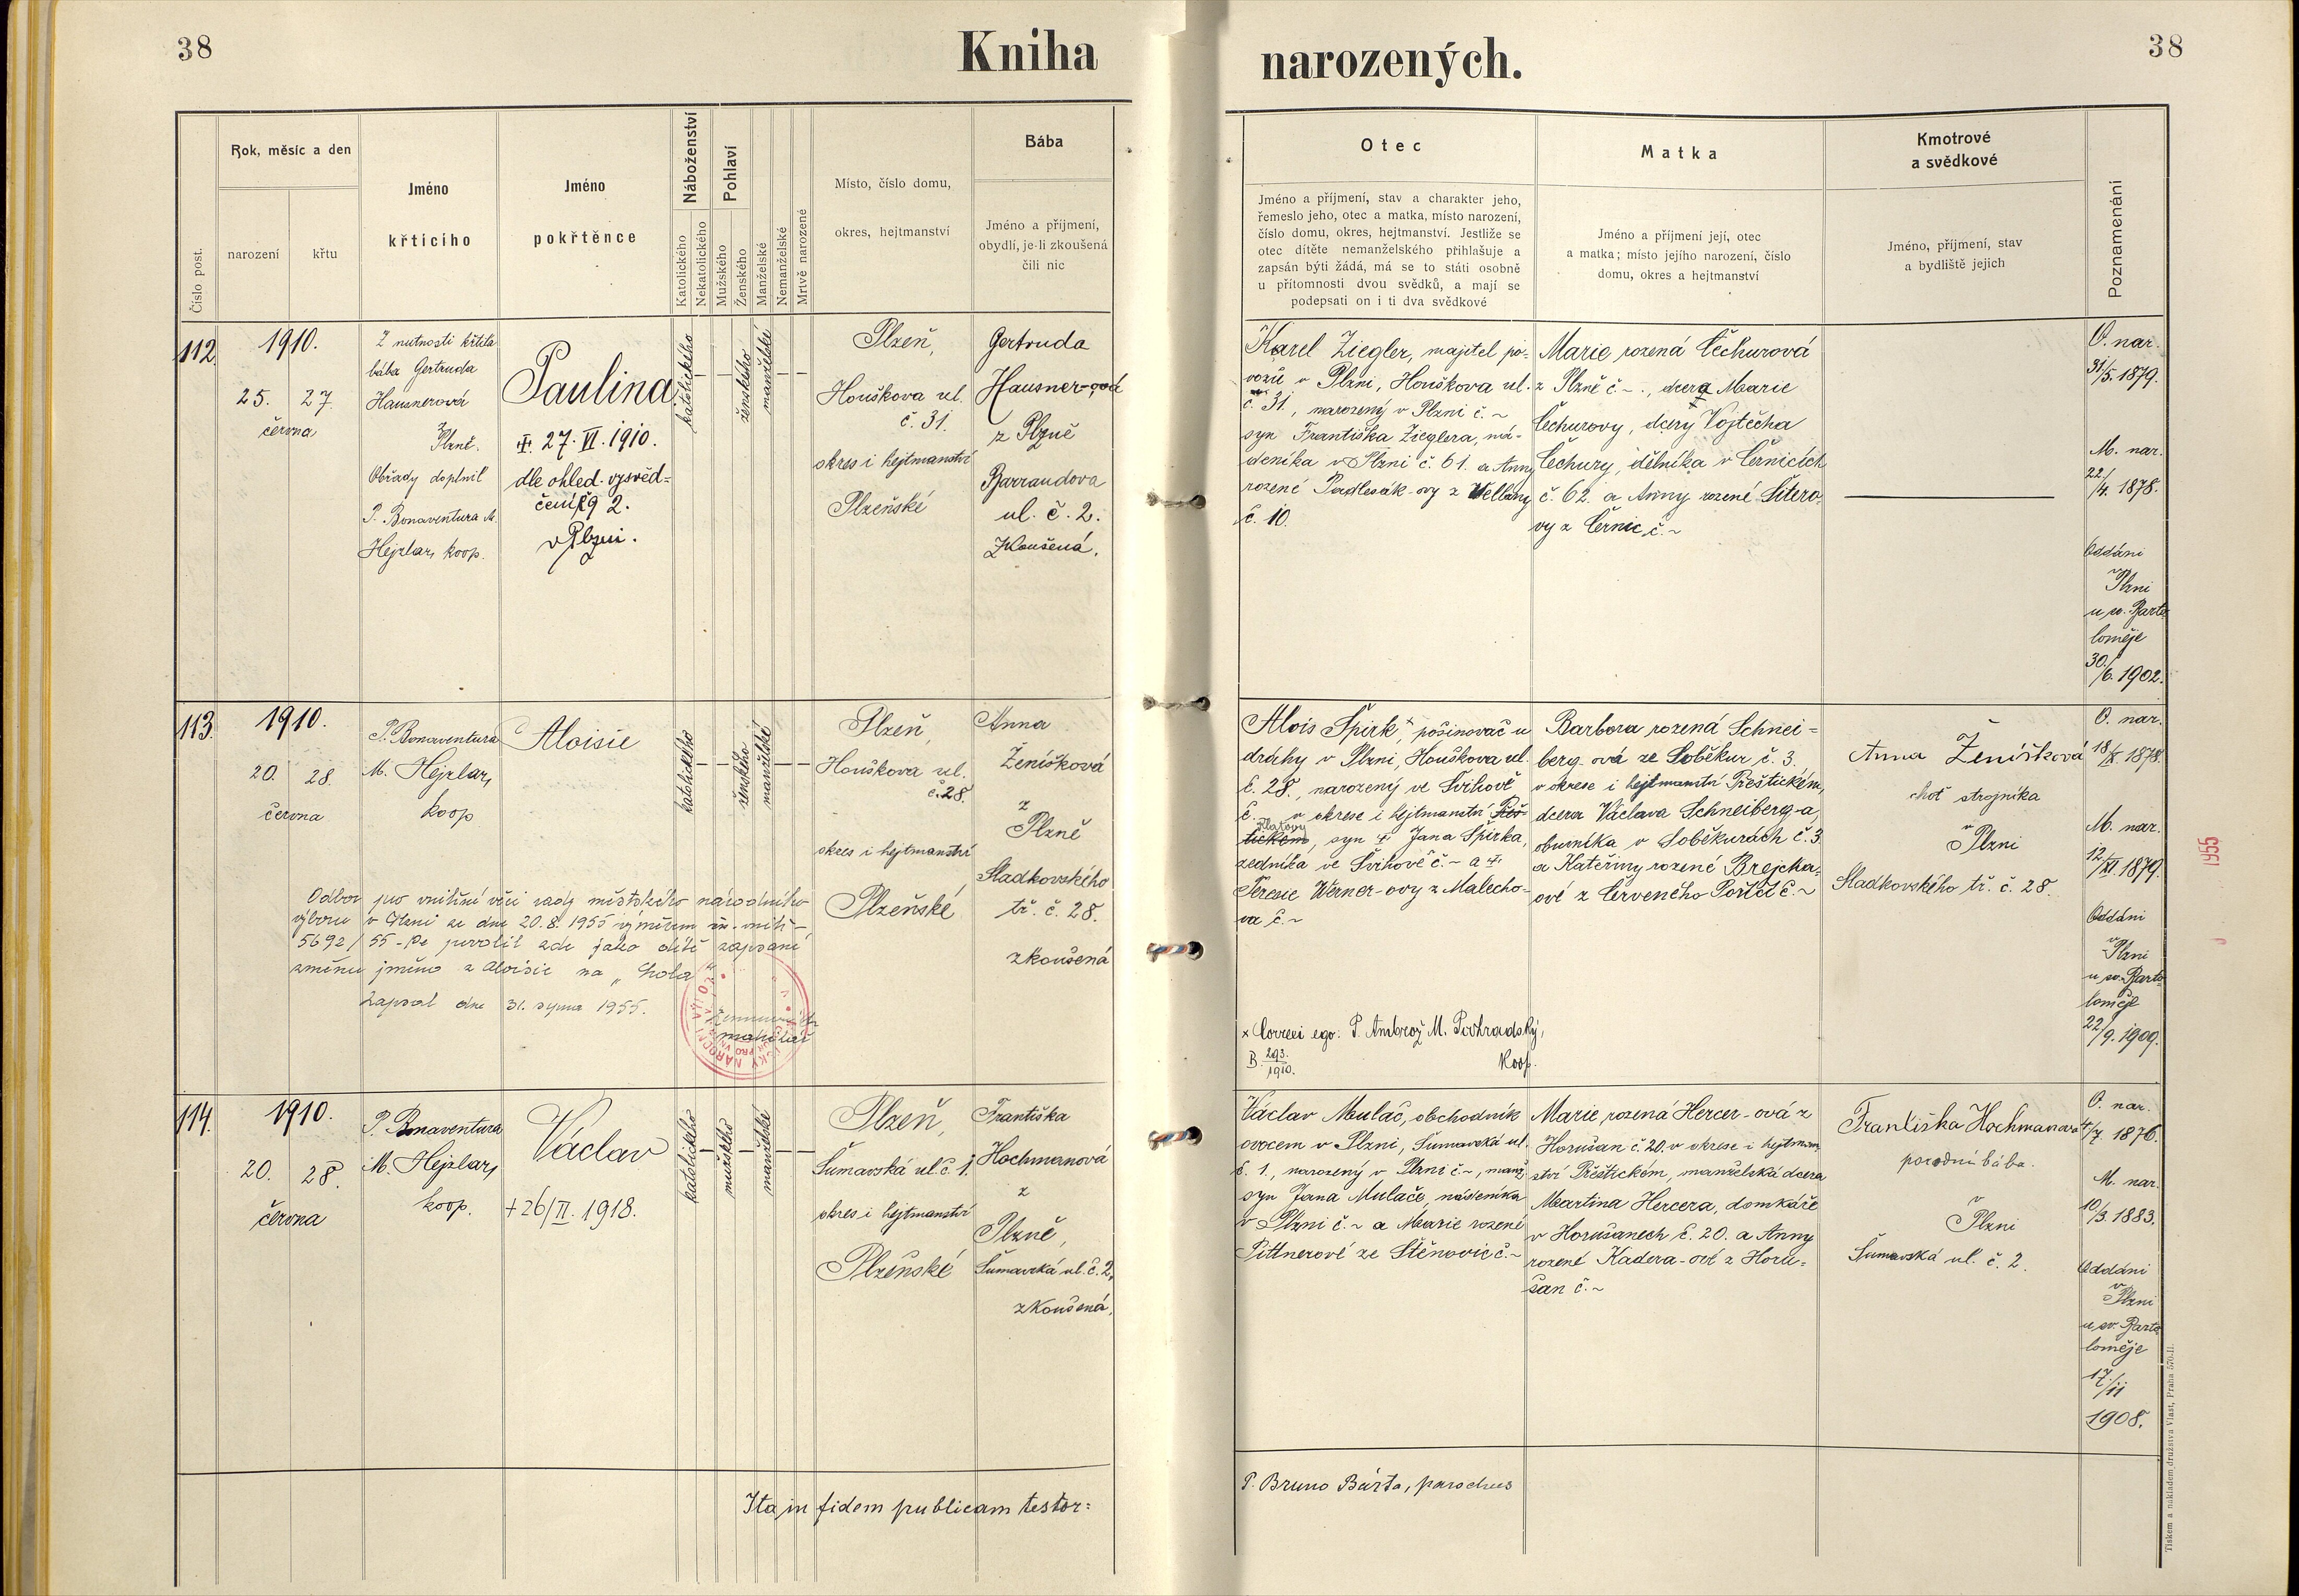 38
Kniha
narozených.
38
Číslo post.
Rok, měsíc a den
narození
křtu
Jméno
křticího
Jméno
pokřtěnce
Náboženství
Katolického
Nekatolického
Pohlaví
Mužského
Ženského
Manželské
Nemanželské
Mrtvě narozené
Místo, číslo domu,
okres, hejtmanství
Bába
Jméno a příjmení,
obydlí, je-li zkoušená
čili nic
Otec
Jméno a příjmení, stav a charakter jeho,
řemeslo jeho, otec a matka, místo narození,
číslo domu, okres, hejtmanství. Jestliže se
otec dítěte nemanželského přihlašuje a
zapsán býti žádá, má se to státi osobně
u přítomnosti dvou svědků, a mají se
podepsati on i ti dva svědkové
Matka
Jméno a příjmení její, otec
a matka; místo jejího narození, číslo
domu, okres a hejtmanství
Kmotrové
a svědkové
Jméno, příjmení, stav
a bydliště jejich
Poznamenání
112.
1910.
25. 27.
června
Z nutnosti křtila
bába Gertruda
Hausnerová
z
Plzně.
Obřady doplnil
P. Bonaventura M.
Hejzlar, koop.
Paulina
✝ 27. VI. 1910.
dle ohled. vysvěd-
čení 2.
v Plzni.
katolického
ženského
manželské
Plzeň,
Houškova ul.
č. 31.
okres i hejtmanství
Plzeňské
Gertruda
Hausner-ová
z Plzně
Barrandova
ul. č. 2.
Zkoušená.
Karel Ziegler, majitel po-
vozů v Plzni, Houškova ul.
č. 31., narozený v Plzni č. ~
syn Františka Zieglera, ná-
deníka v Plzni č. 61. a Anny
rozené Podlesák-ovy z
č. 10.
Marie rozená Čechurová
z Plzně č -., dcera Marie
Čechurovy, dcery Vojtěcha
Čechury, dělníka v Černicích
č. 62. a Anny rozené Sitero-
vy z Černic č. ~
O. nar.
31/5. 1879.
M. nar.
22/4. 1878.
Oddáni
v
Plzni
u sv. Barto-
loměje
30./6. 1902.
113.
1910.
20. 28.
června
P. Bonaventura
M. Hejzlar,
koop
Aloisie
katolického
ženského
manželské
Plzeň,
Houškova ul.
č. 28.
okres i hejtmanství
Plzeňské
Anna
Ženíšková
z
Plzně
Sladkovského
tř. č. 28.
zkoušená
Odbor pro vnitřní věci rady městského národního
výboru v Plzni ze dne 20. 8. 1955 výměrem zn. vnitř-
5692/55-Pe povolil zde jako dítě zapsané
změnu jména z Aloisie na „Lola“.
Zapsal dne 31. srpna 1955.
matrikář
Alois Špirk × pošinovač u
dráhy v Plzni, Houškova ul.
č. 28., narozený ve Švihově
č. ~ v okrese i hejtmanství Přeš-
Klatovy
tickém, syn ✝ Jana Špirka,
zedníka ve Švihově č. ~ a ✝
Terezie Werner-ovy z Malecho-
va č. ~
× Correxi ego: P. Ambrož M. Podhradský,
koop.
B. 293./1910.
Barbora rozená Schnei-
berg-ová ze Soběkur č. 3.
v okrese i hejtmanství Přeštickém,
dcera Václava Schneiberg-a,
obuvníka v Soběkurách č. 3
a Kateřiny rozené Brejcha-
ové z Červeného Poříčí č. ~
Anna Ženíšková
choť strojníka
v
Plzni
Sladkovského tř. č. 28.
O. nar.
18/X. 1878.
M. nar.
12/XI. 1879.
Oddáni
v
Plzni
u sv. Barto-
loměje
22/9. 1909.
1955
114.
1910.
20. 28.
června
P. Bonaventura
M. Hejzlar,
koop.
Václav
+ 26/II. 1918.
katolického
mužského
manželské
Plzeň,
Šumavská ul. č. 1.
okres i hejtmanství
Plzeňské
Františka
Hochmanová
z
Plzně,
Šumavská ul. č. 2,
zkoušená.
Václav Mulač, obchodník
ovocem v Plzni, Šumavská ul.
č. 1., narozený v Plzni č. ~, manž.
syn Jana Mulače, nádeníka
v Plzni č. ~ a Marie rozené
Pittnerové ze Štěnovic č. ~
Marie, rozená Hercer-ová z
Horušan č. 20. v okrese i hejtman-
ství Přeštickém, manželská dcera
Martina Hercera, domkáře
v Horušanech č. 20. a Anny
rozené Kadera-ové z Horu-
šan č. ~
Františka Hochmanová
porodní bába.
v
Plzni
Šumavská ul. č. 2.
O. nar.
4/7. 1876.
M. nar.
10/3. 1883.
Oddáni
v
Plzni
u sv. Barto-
loměje
17./11
1908.
Ita in fidem publicam testor:
P. Bruno Bárta, parochus
Tiskem a nákladem družstva Vlast, Praha 570-II.